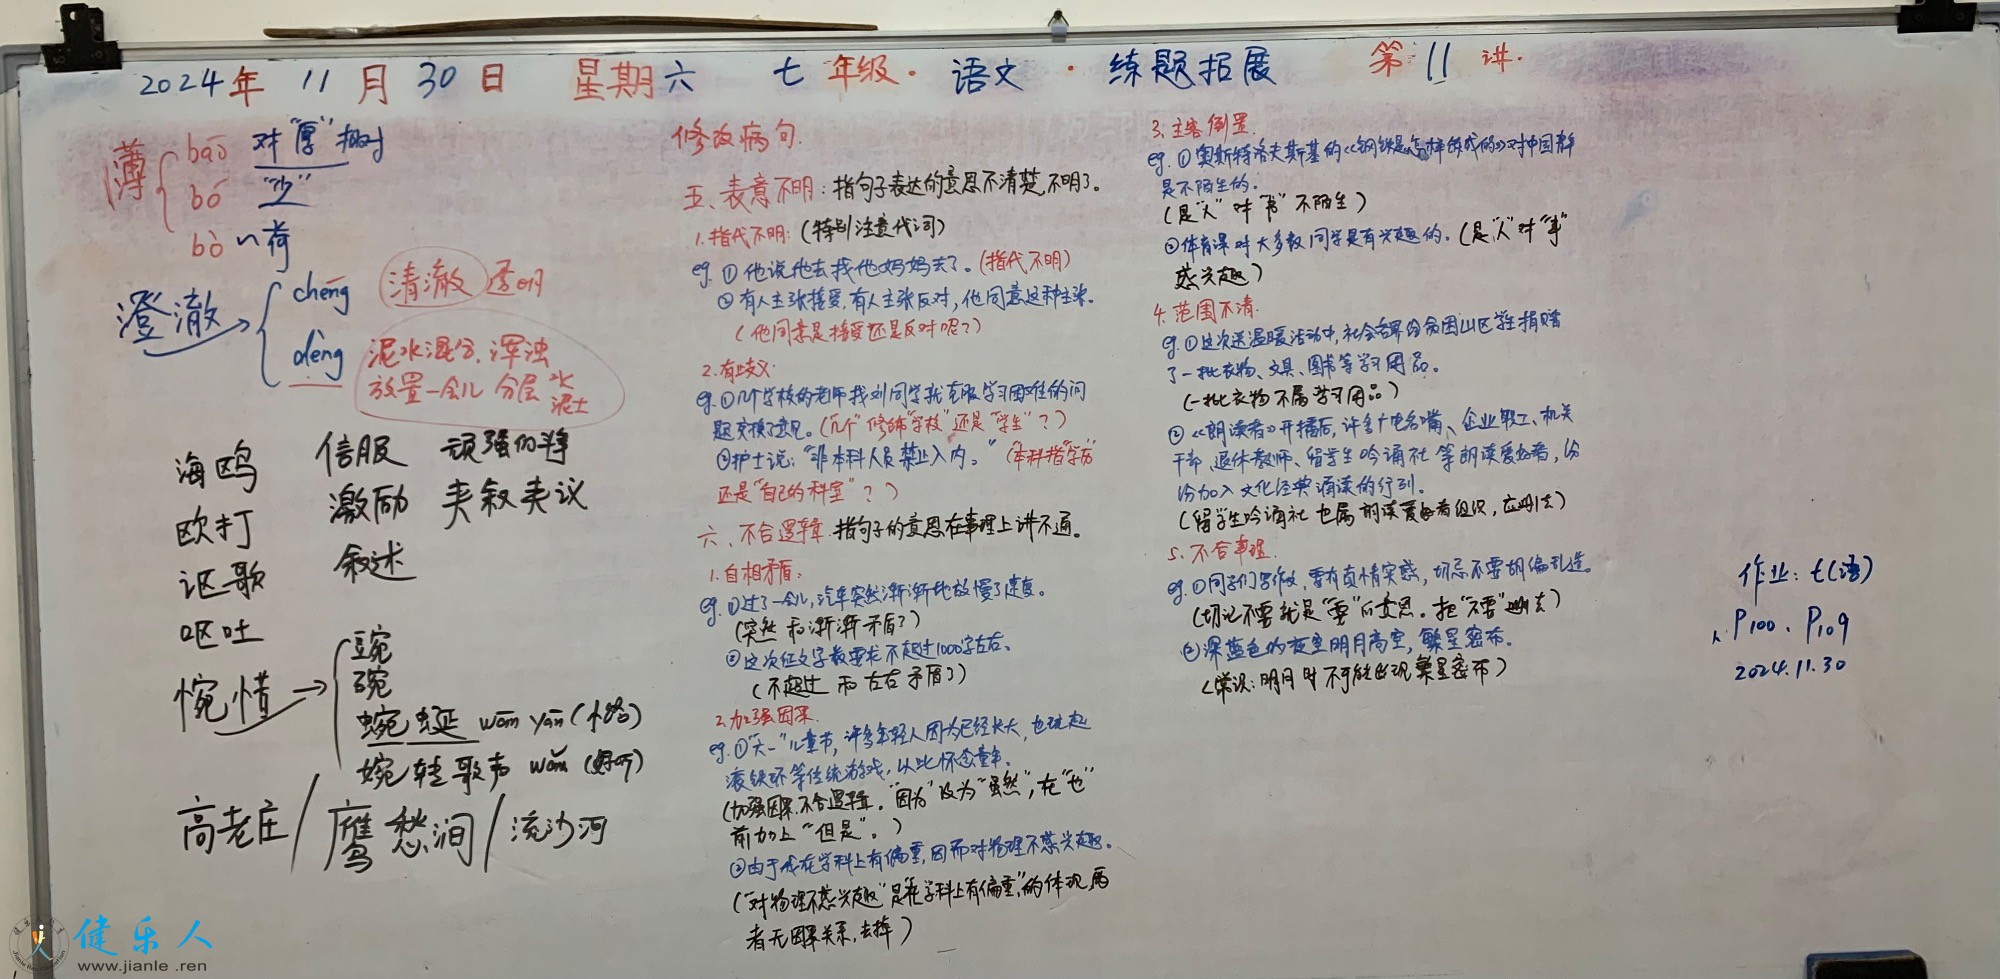 2024年 11月30日 星期六 七年级·语文·练题拓展 第11讲.
薄
báo 对“厚”相对
bó “少”
bò ~荷
澄澈
chéng 清澈 透明
dèng 泥水混合，浑浊
放置一会儿 分层 水
泥土
海鸥 信服 顽强的斗争
欧打 激励 夹叙夹议
讴歌 叙述
呕吐
惋惜
豌
碗
蜿蜒 wān yán (小路)
婉转歌声 wǎn (好听)
高老庄/鹰愁涧/流沙河
修改病句.
五、表意不明：指句子表达的意思不清楚，不明了。
1.指代不明：(特别注意代词)
eg.①他说他去找他妈妈去了。(指代不明)
②有人主张接受，有人主张反对，他同意这种主张.
(他同意是接受还是反对呢？)
2.有歧义
eg.①几个学校的老师找刘同学就克服学习困难的问
题交换了意见。(“几个”修饰“学校”还是“学生”？)
②护士说：“非本科人员禁止入内。”(“本科指“学历”
还是“自己的科室”？)
六、不合逻辑：指句子的意思在事理上讲不通。
1.自相矛盾：
eg.①过了一会儿，汽车突然渐渐地放慢了速度。
(突然 和 渐渐 矛盾了)
②这次征文字数要求不超过1000字左右。
(不超过 和 左右 矛盾了)
2.加强因果.
eg.①“六一”儿童节，许多年轻人因为已经长大，也玩起
滚铁环等传统游戏，以此怀念童年.
(加强因果，不合逻辑.“因为”改为“虽然”，在“也”
前加上“但是”。)
②由于我在学科上有偏重，因而对物理不感兴趣。
(“对物理不感兴趣”是“在学科上有偏重”的体现，两
者无因果关系，去掉)
3.主客倒置.
eg.①奥斯特洛夫斯基的《钢铁是怎样炼成的》对中国
是不陌生的.
(是“人”对“书”不陌生)
②体育课对大多数同学是有兴趣的.(是“人”对“事”
感兴趣)
4.范围不清.
eg.①这次送温暖活动中，社会各界为贫困山区学生捐赠
了一批衣物、文具、图书等学习用品。
(一批衣物不属学习用品)
②《朗读者》开播后，许多广电名嘴、企业职工、机关
干部、退休教师、留学生吟诵社等朗读爱好者，纷
纷加入文化经典诵读的行列.
(留学生吟诵社也属朗读爱好者组织，应删去)
5.不合事理.
eg.①同学们写作文，要有真情实感，切忌不要胡编乱造。
(切记不要就是“要”的意思。把“不要”删去)
②深蓝色的夜空明月高空，繁星密布.
(常识：明月时不可能出现繁星密布)
作业：七(语)
P100、P109
2024.11.30
健乐人
www.jianle.ren